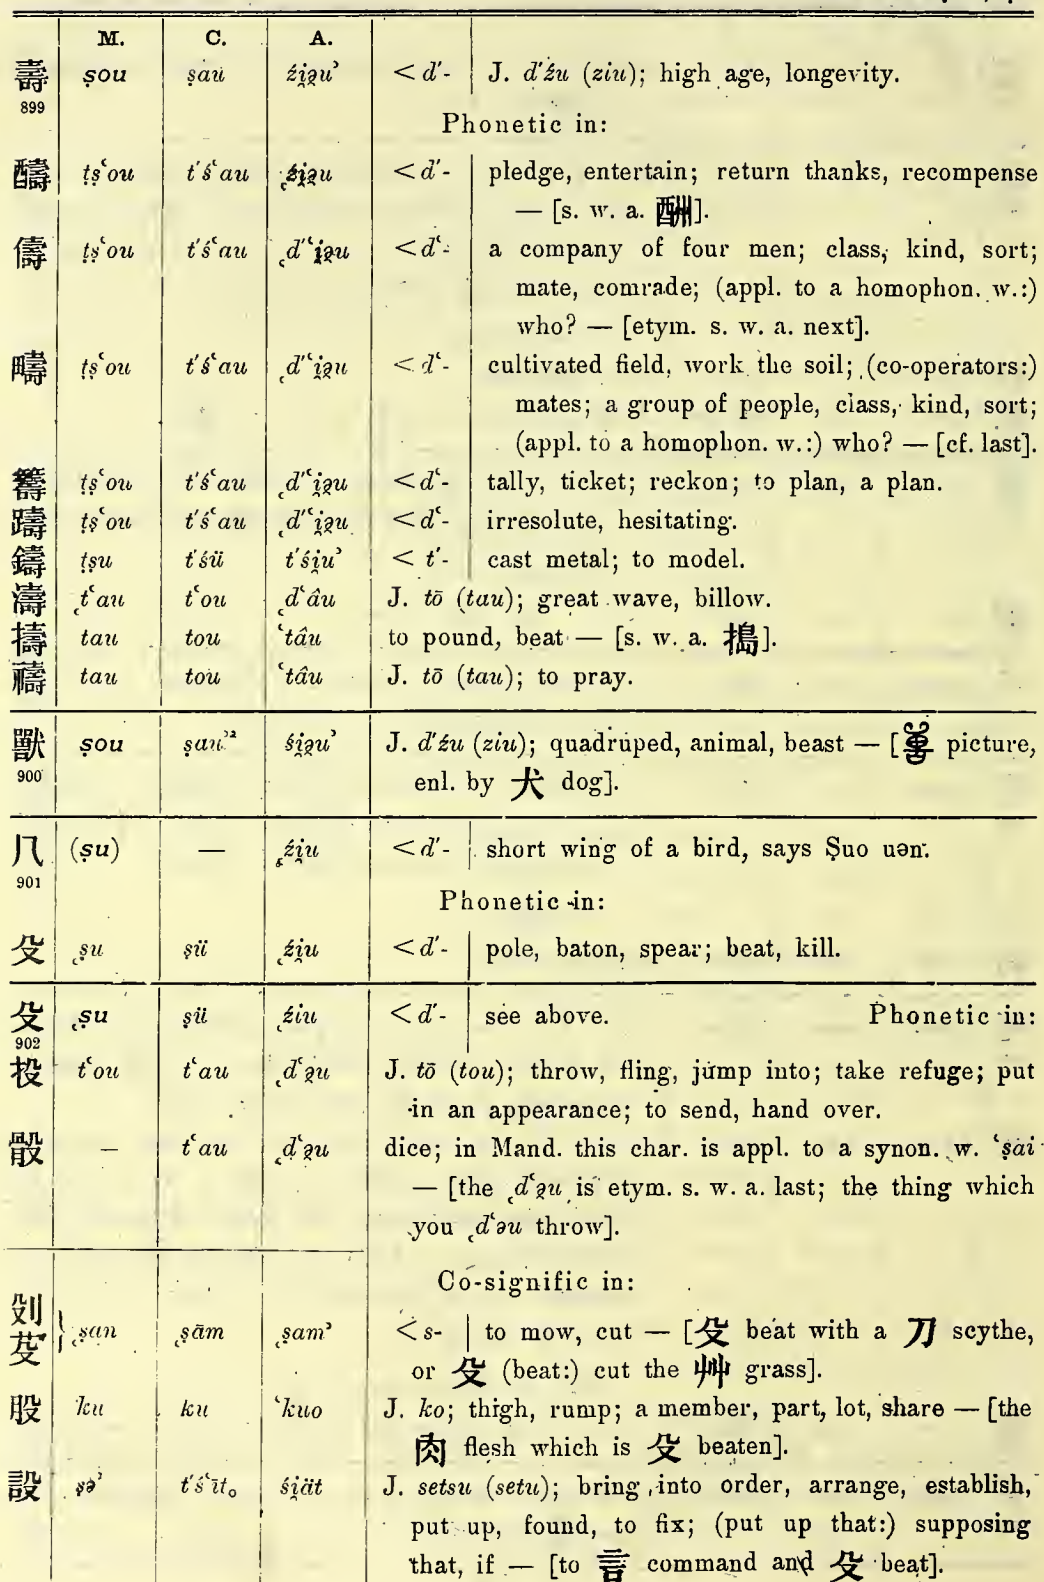 M. C. A.
壽 ṣou ṣau źi̯ə̯u’ < d'- J. d'źu (ziu); high age, longevity.
899
Phonetic in:
醻 tṣ‘ou t'ś‘au ˛źi̯ə̯u < d'- pledge, entertain; return thanks, recompense
— [s. w. a. 酬].
儔 tṣ‘ou t'ś‘au ˛d'‘i̯ə̯u < d‘- a company of four men; class, kind, sort;
mate, comrade; (appl. to a homophon. w.:)
who? — [etym. s. w. a. next].
疇 tṣ‘ou t'ś‘au ˛d'‘i̯ə̯u < d‘- cultivated field, work the soil; (co-operators:)
mates; a group of people, class, kind, sort;
(appl. to a homophon. w.:) who? — [cf. last].
籌 tṣ‘ou t'ś‘au ˛d'‘i̯ə̯u < d‘- tally, ticket; reckon; to plan, a plan.
躊 tṣ‘ou t'ś‘au ˛d'‘i̯ə̯u < d‘- irresolute, hesitating.
鑄 tṣu t'śü t'śi̯u’ < t'- cast metal; to model.
濤 ˛t‘au t‘ou ˛d‘âu J. tō (tau); great wave, billow.
擣 tau tou ‘tâu to pound, beat — [s. w. a. 搗].
禱 tau tou ‘tâu J. tō (tau); to pray.
獸 ṣou ṣau’² śi̯ə̯u’ J. d'źu (ziu); quadruped, animal, beast — [ picture,
900
enl. by 犬 dog].
几 (ṣu) — ˛źi̯u < d'- short wing of a bird, says Ṣuo uən.
901
Phonetic in:
殳 ˛ṣu ṣü ˛źi̯u < d'- pole, baton, spear; beat, kill.
殳 ˛ṣu ṣü ˛źi̯u < d'- see above. Phonetic in:
902
投 t‘ou t‘au ˛d‘ə̯u J. tō (tou); throw, fling, jump into; take refuge; put
in an appearance; to send, hand over.
骰 — t‘au ˛d‘ə̯u dice; in Mand. this char. is appl. to a synon. w. ‘ṣai
— [the ˛d‘ə̯u is etym. s. w. a. last; the thing which
you ˛d‘əu throw].
Co-signific in:
芟 } ˛ṣan ˛ṣām ˛ṣam’ < s- to mow, cut — [殳 beat with a 刀 scythe,
or 殳 (beat:) cut the 艸 grass].
股 ‘ku ku ‘kuo J. ko; thigh, rump; a member, part, lot, share — [the
肉 flesh which is 殳 beaten].
設 ṣə’ t'ś‘īt₀ śi̯ät J. setsu (setu); bring into order, arrange, establish,
put up, found, to fix; (put up that:) supposing
that, if — [to 言 command and 殳 beat].